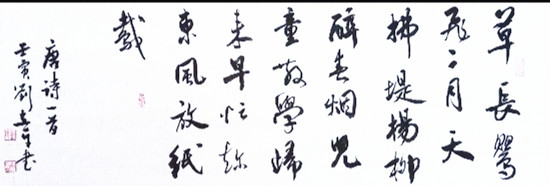 草長鶯
飛二月天
拂堤楊柳
醉春烟兒
童散學歸
來早忙趁
東風放紙
鳶
唐詩一首
壬寅劉書